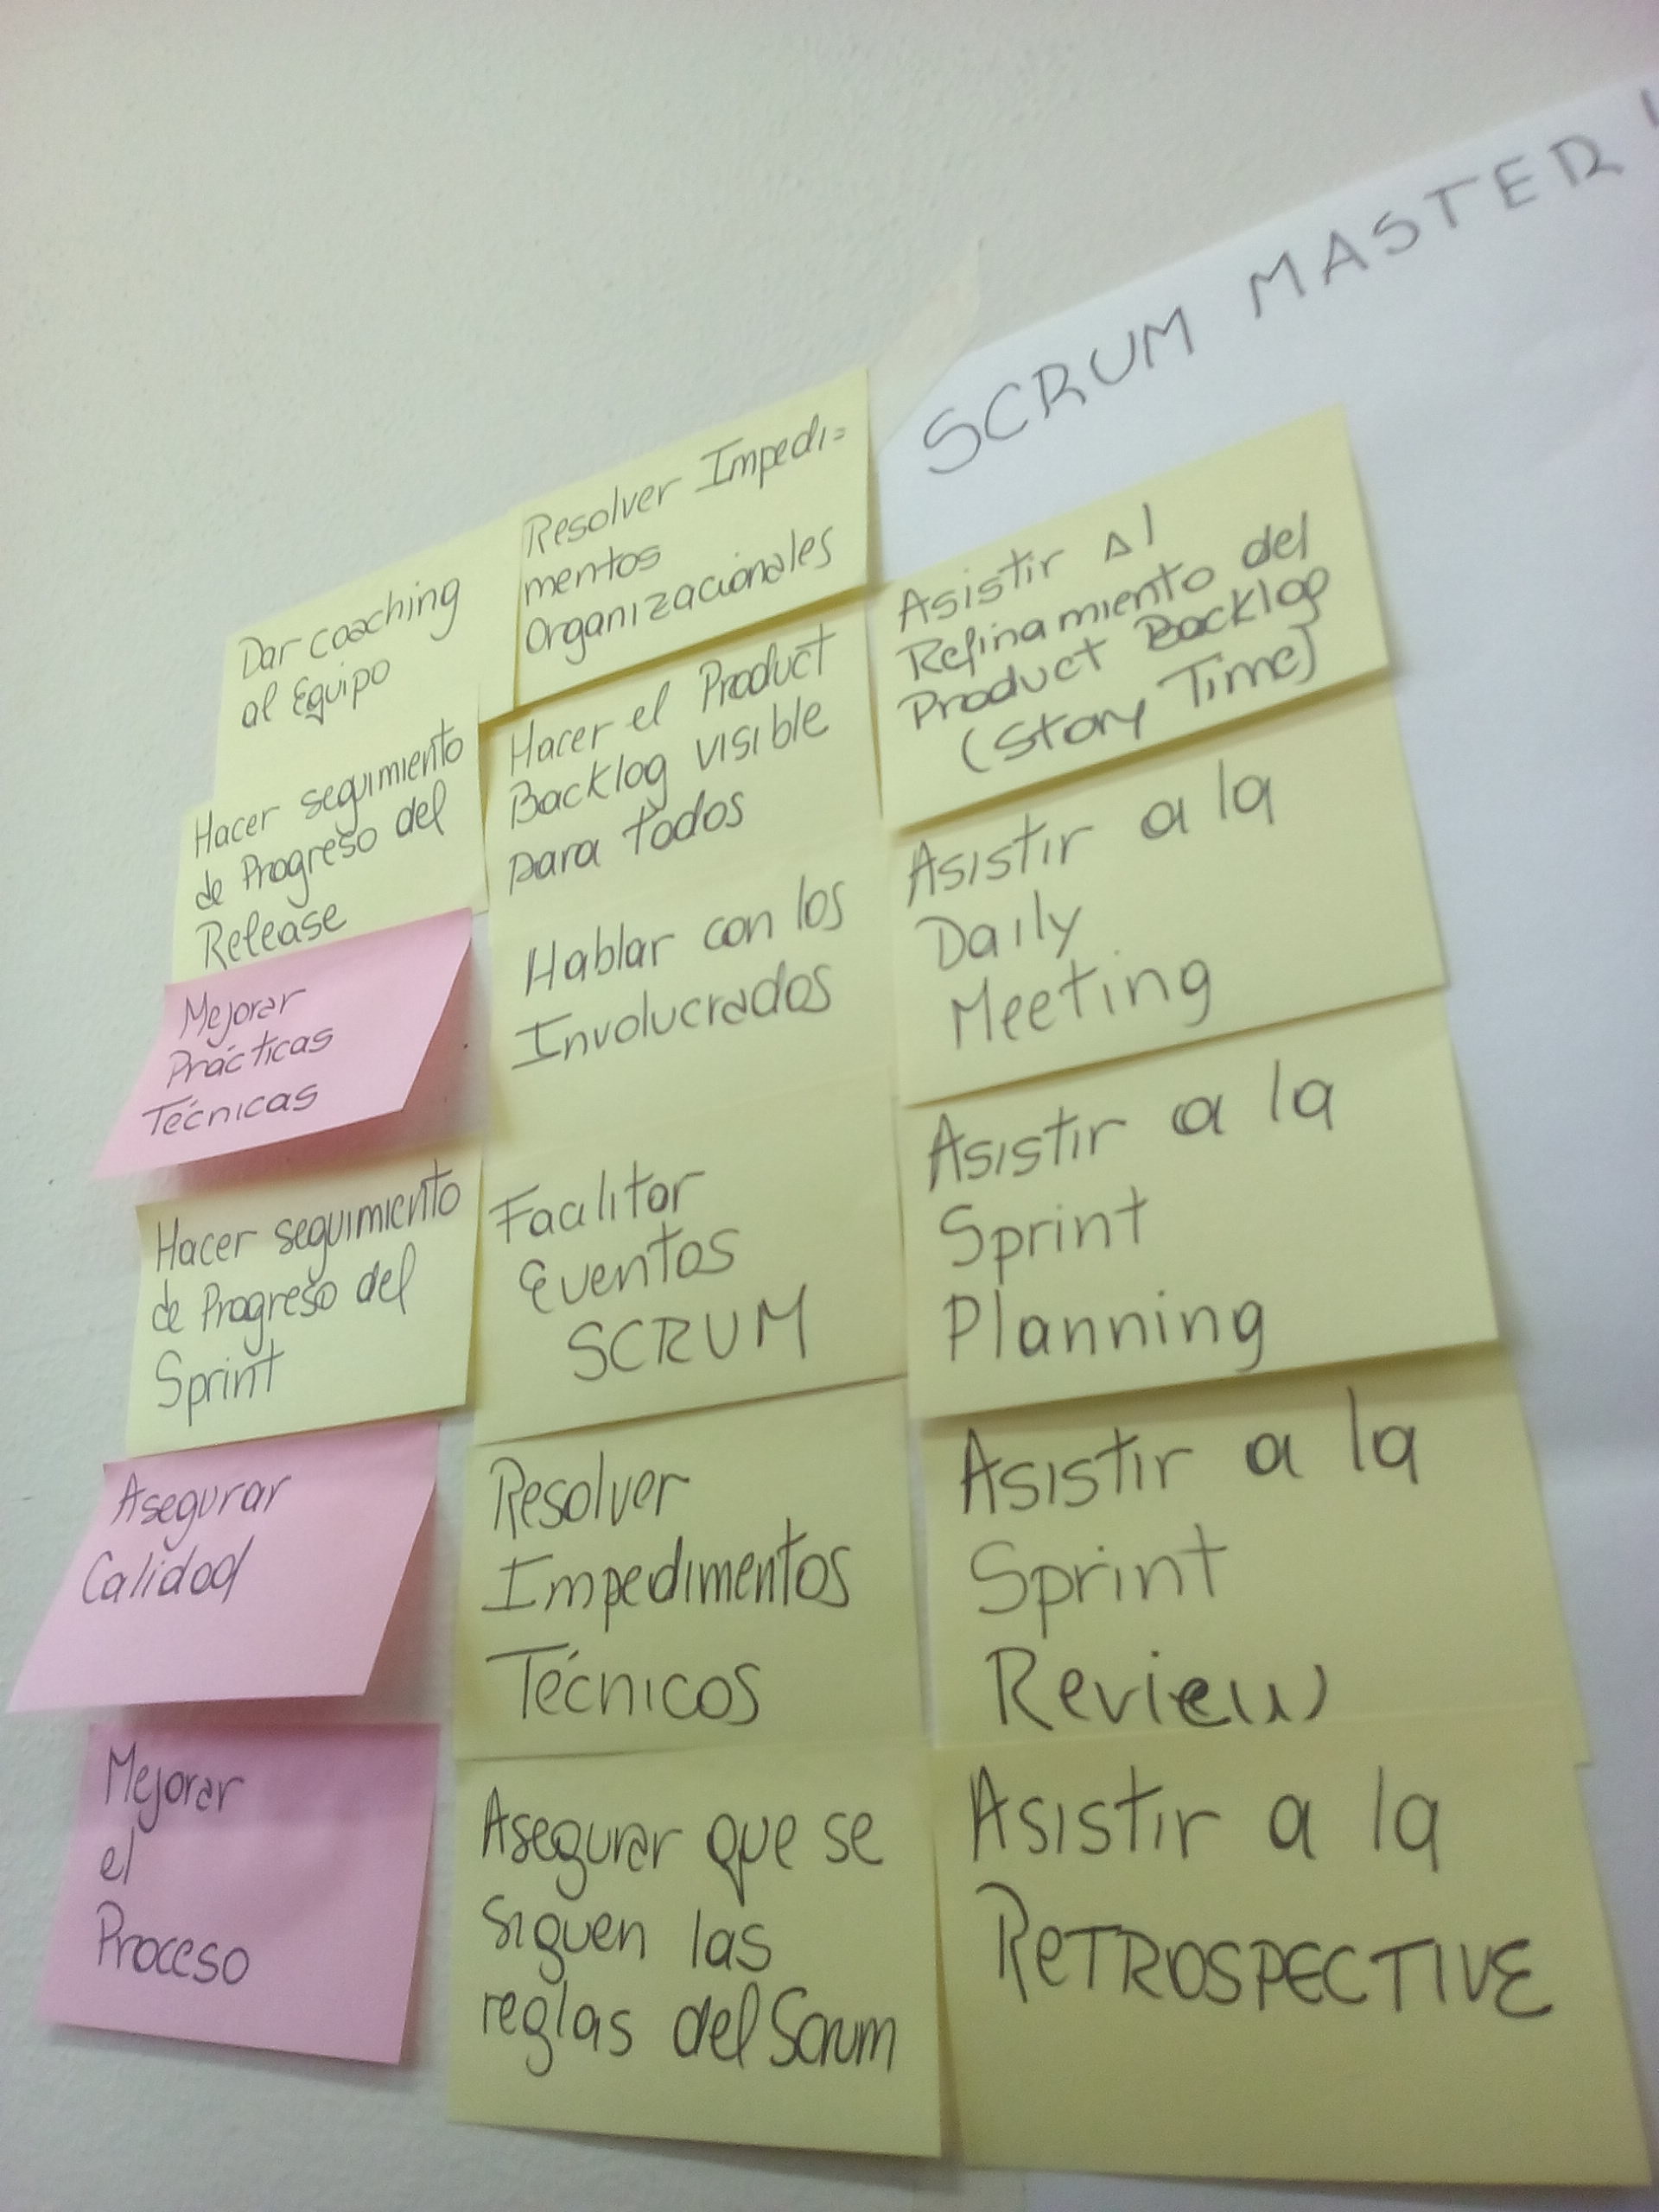 SCRUM MASTER
Dar coaching
al Equipo
Hacer seguimiento
de Progreso del
Release
Mejorar
Prácticas
Técnicas
Hacer seguimiento
de Progreso del
Sprint
Asegurar
Calidad
Mejorar
el
Proceso
Resolver Impedi=
mentos
Organizacionales
Hacer el Product
Backlog visible
para todos
Hablar con los
Involucrados
Facilitar
Eventos
SCRUM
Resolver
Impedimentos
Técnicos
Asegurar que se
siguen las
reglas del Scrum
Asistir Al
Refinamiento del
Product Backlog
(Story Time)
Asistir a la
Daily
Meeting
Asistir a la
Sprint
Planning
Asistir a la
Sprint
Review
Asistir a la
RETROSPECTIVE